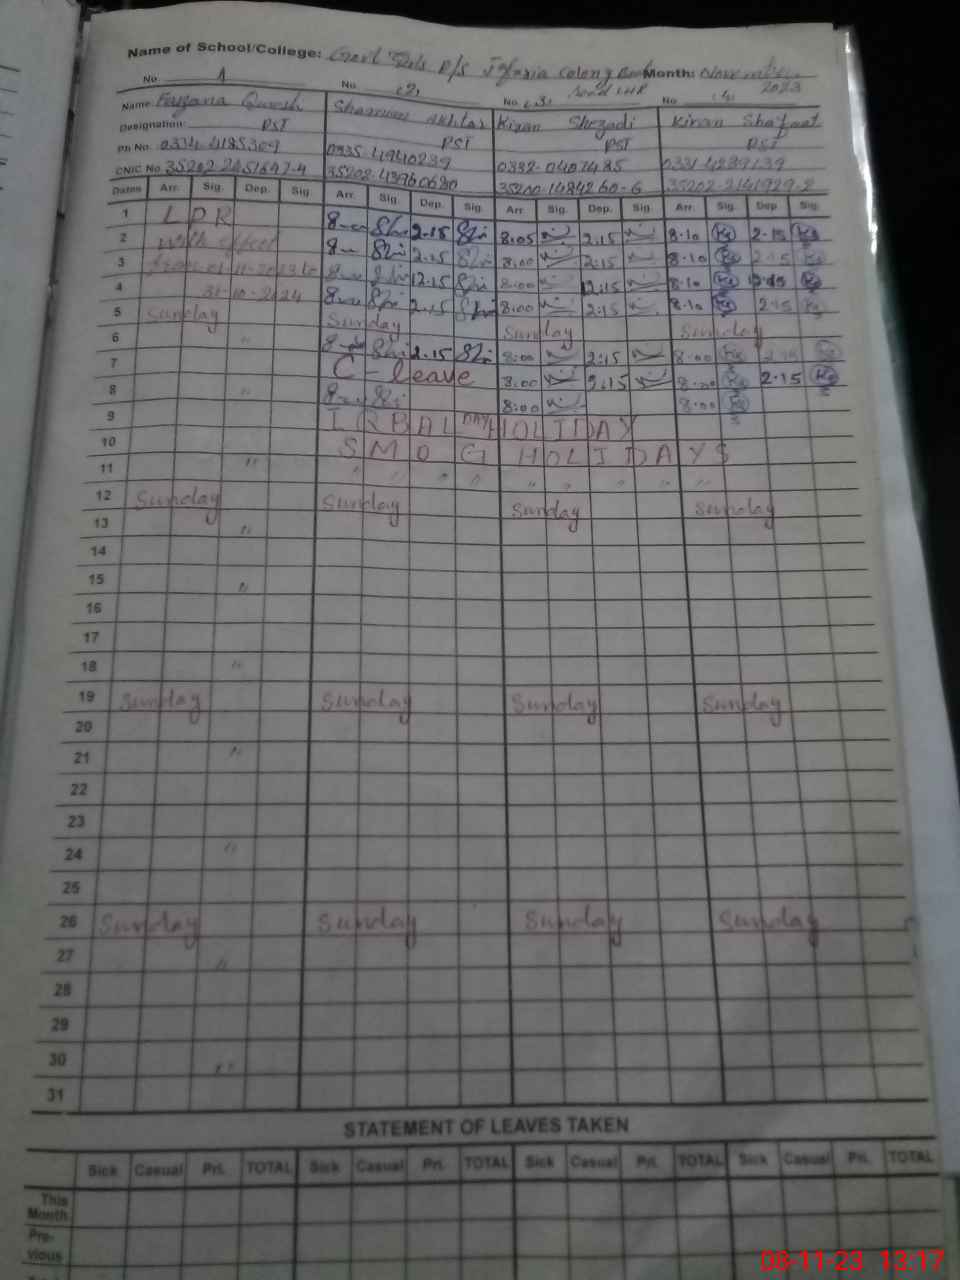 Name of School/College: Govt Girls P/S Jafaria Colony Month: November
Road LHR 2023
No 1 No (2) No (3) No (4)
Name Farzana Shamim Akhtar Kiran Shezadi Kiran Shafaat
Designation: PST PST PST PST
PH No. 0334-4185309 0335-4940239 0332-0407485 0331-4239139
CNIC No 35202-2451697-4 35200-1484260-6 35202-2141929-2
Dates Arr. Sig. Dep. Sig Arr. Sig. Dep. Sig. Arr. Sig. Dep. Sig. Arr. Sig. Dep. Sig.
1 LPR 8- 2.15 8:05 2:15 8.10 2.15
2 with effect 8- 2.15 8:00 2:15 8.10 2.15
3 from 01-11-2023 to 12.15 8:00 12:15 8.10 12.15
4 31-10-2024 2.15 8:00 2:15 8.10 2.15
5 Sunday Sunday Sunday Sunday
6 " 8- 2.15 8:00 2:15 8.00 2.15
7 C-leave 8:00 2:15 8.00 2.15
8 " 8:00 8.00
9 IQBAL DAY HOLIDAY
10 SMOG HOLIDAYS
11 " " " " " " " " " "
12 Sunday Sunday Sunday Sunday
13 "
14
15 "
16
17
18 "
19 Sunday Sunday Sunday Sunday
20
21 "
22
23
24 "
25
26 Sunday Sunday Sunday Sunday
27 "
28
29
30 "
31
STATEMENT OF LEAVES TAKEN
Sick Casual Pri. TOTAL Sick Casual Pri. TOTAL Sick Casual Pri. TOTAL Sick Casual Pri. TOTAL
This
Month
Pre-
vious
08-11-23 13:17